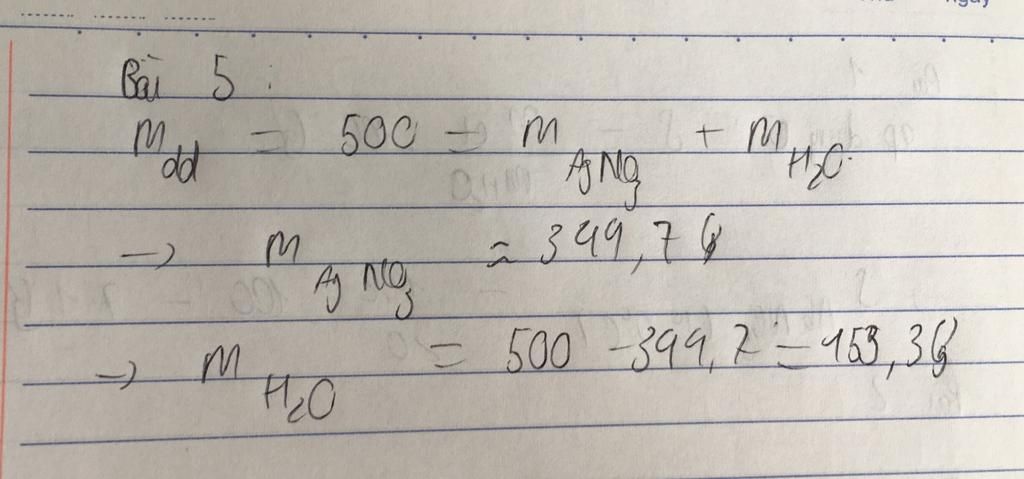 Bài 5:
m dd = 500 = m AgNO3 + m H2O.
→ m AgNO3 ≈ 349,7 g
→ m H2O = 500 - 349,7 = 153,3 g